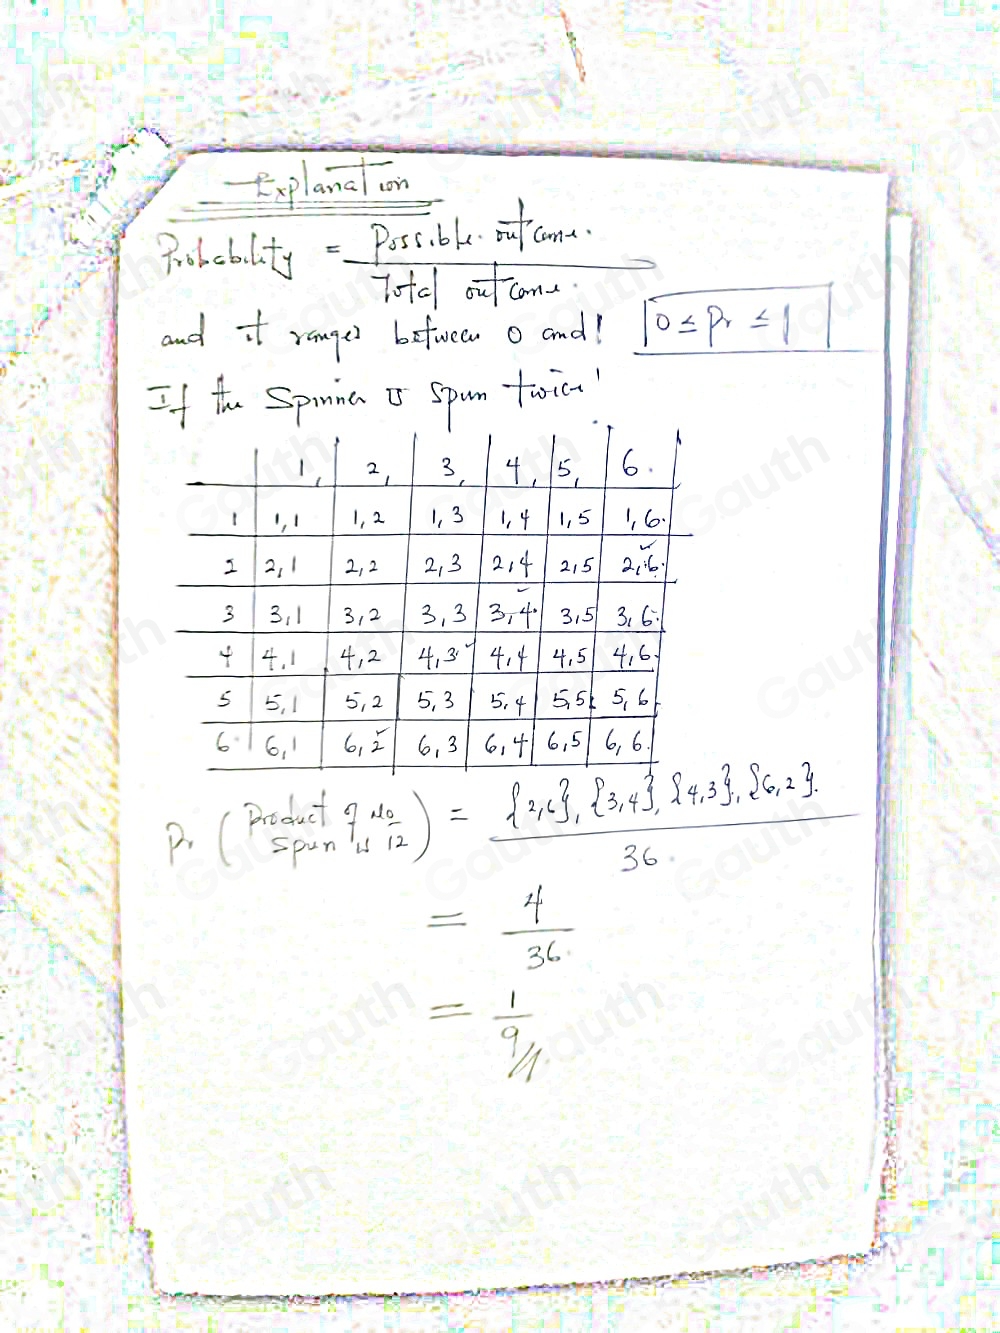 Explanation
Probability = Possible outcome.
Total outcome.
and it ranges between 0 and 1 0 ≤ Pr ≤ 1
If the Spinner is spun twice
1, 2, 3, 4, 5, 6.
1 1,1 1,2 1,3 1,4 1,5 1,6.
2 2,1 2,2 2,3 2,4 2,5 2,6.
3 3,1 3,2 3,3 3,4 3,5 3,6.
4 4,1 4,2 4,3 4,4 4,5 4,6.
5 5,1 5,2 5,3 5,4 5,5 5,6
6. 6,1 6,2 6,3 6,4 6,5 6,6.
Pr (Product of No spun is 12) = {2,6}, {3,4}, {4,3}, {6,2}.
36.
= 4
36.
= 1
9
Gauth